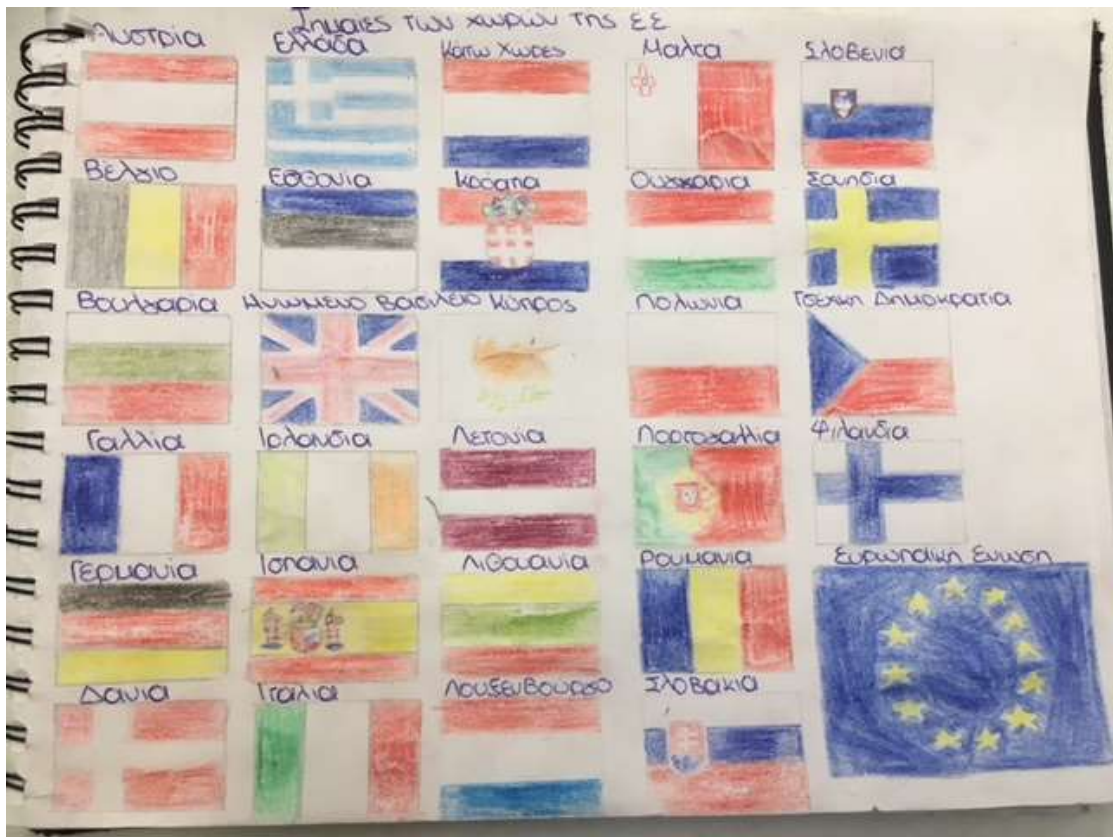 Σημαίες των χωρών της ΕΕ
Αυστρία Ελλάδα Κάτω Χώρες Μάλτα Σλοβενία
Βέλγιο Εσθονία Κροατία Ουγγαρία Σουηδία
Βουλγαρία Ηνωμένο Βασίλειο Κύπρος Πολωνία Τσέχικη Δημοκρατία
Γαλλία Ιρλανδία Λετονία Πορτογαλλία Φιλανδία
Γερμανία Ισπανία Λιθουανία Ρουμανία Ευρωπαϊκή Ένωση
Δανία Ιταλία Λουξεμβούργο Σλοβακία